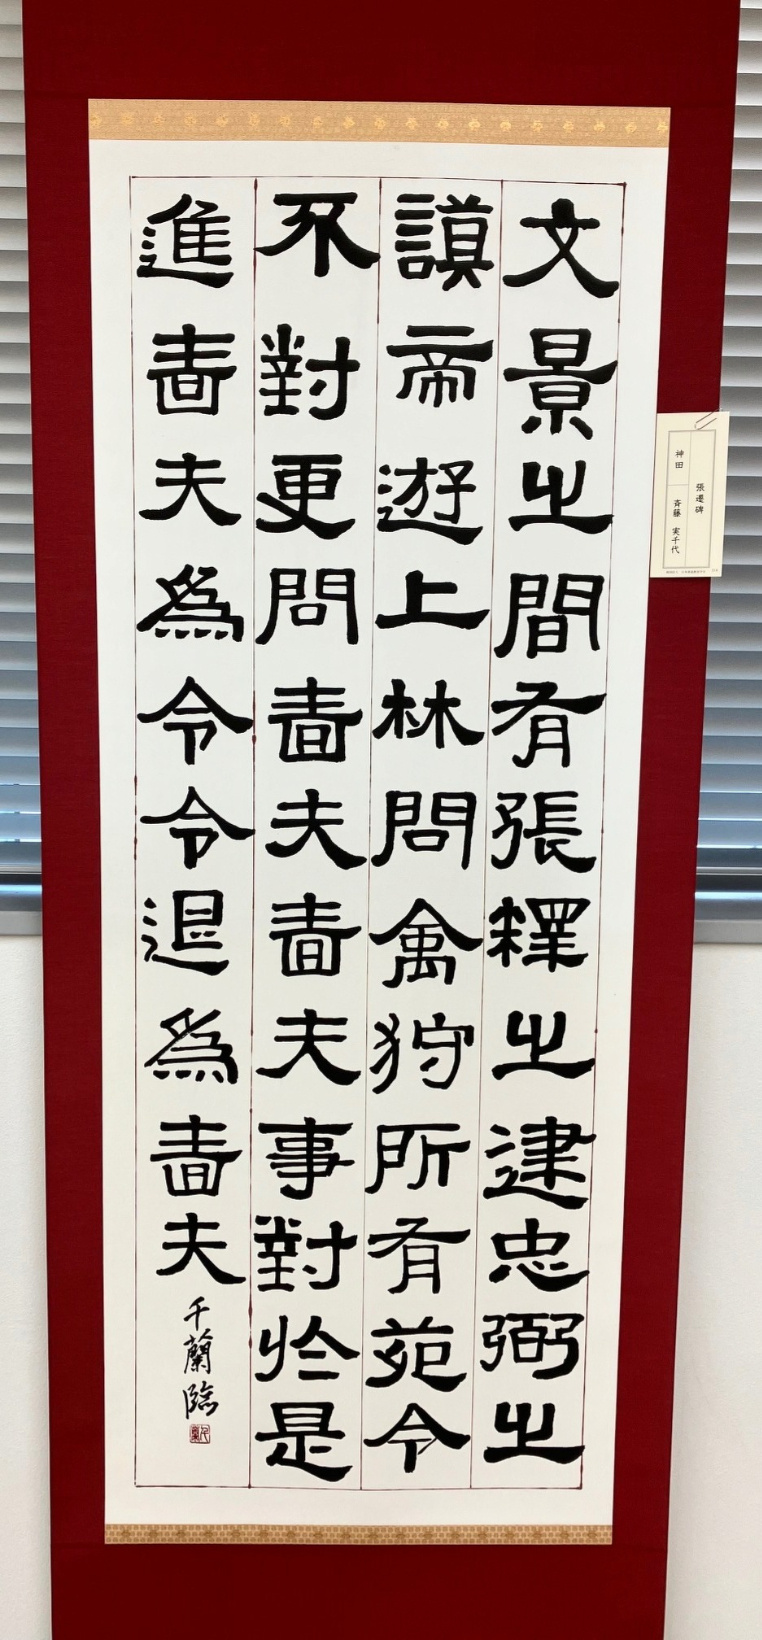 文景之間有張釋之建忠弼之
謨帝遊上林問禽狩所有苑令
不對更問嗇夫嗇夫事對於是
進嗇夫爲令令退爲嗇夫
千蘭臨
張遷碑
神田 斉藤 実千代